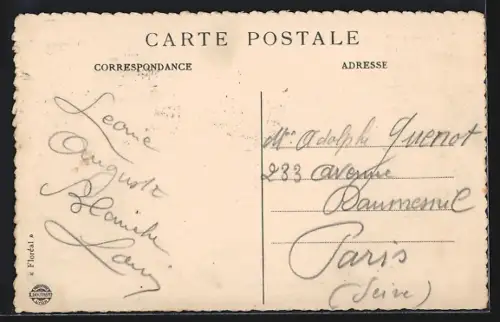 CARTE POSTALE
CORRESPONDANCE
ADRESSE
Leonie
Auguste
Blanche
Mr Adolphe Quenot
233 avenue
Daumesnil
Paris
(Seine)
« Floréal »